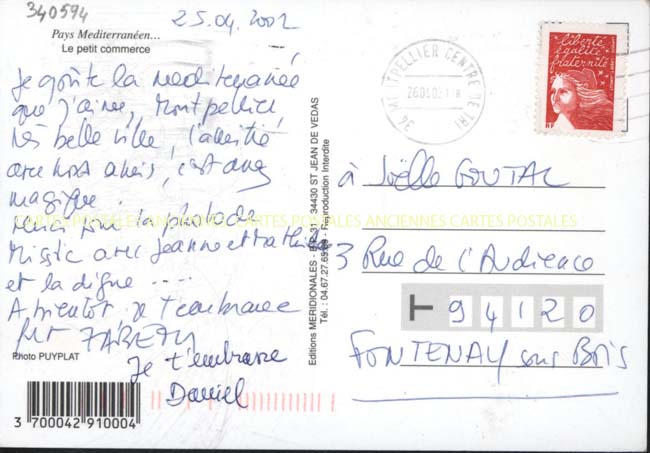 340594
25.04.2002
Pays Mediterranéen...
Le petit commerce
Je goûte la mediterranée
que j'aime, Montpellier,
très belle ville, l'amitié
avec nos amis, c'est assez
magique.
merci pour la photo de
Missic avec Jeanne et Mathilde
et la digne ....
A bientôt je t'embrasse
Je t'embrasse
Daniel
Photo PUYPLAT
3 700042 910004
Editions MERIDIONALES - BP 31 - 34430 ST JEAN DE VEDAS
Tél. : 04.67.27.65 - Reproduction Interdite
34 MONTPELLIER CENTRE
26.04.02
liberté
égalité
fraternité
RF
à Joëlle GOUTAL
3 Rue de l'Audience
94120
FONTENAY sous Bois
CARTES POSTALES ANCIENNES CARTES POSTALES ANCIENNES CARTES POSTALES